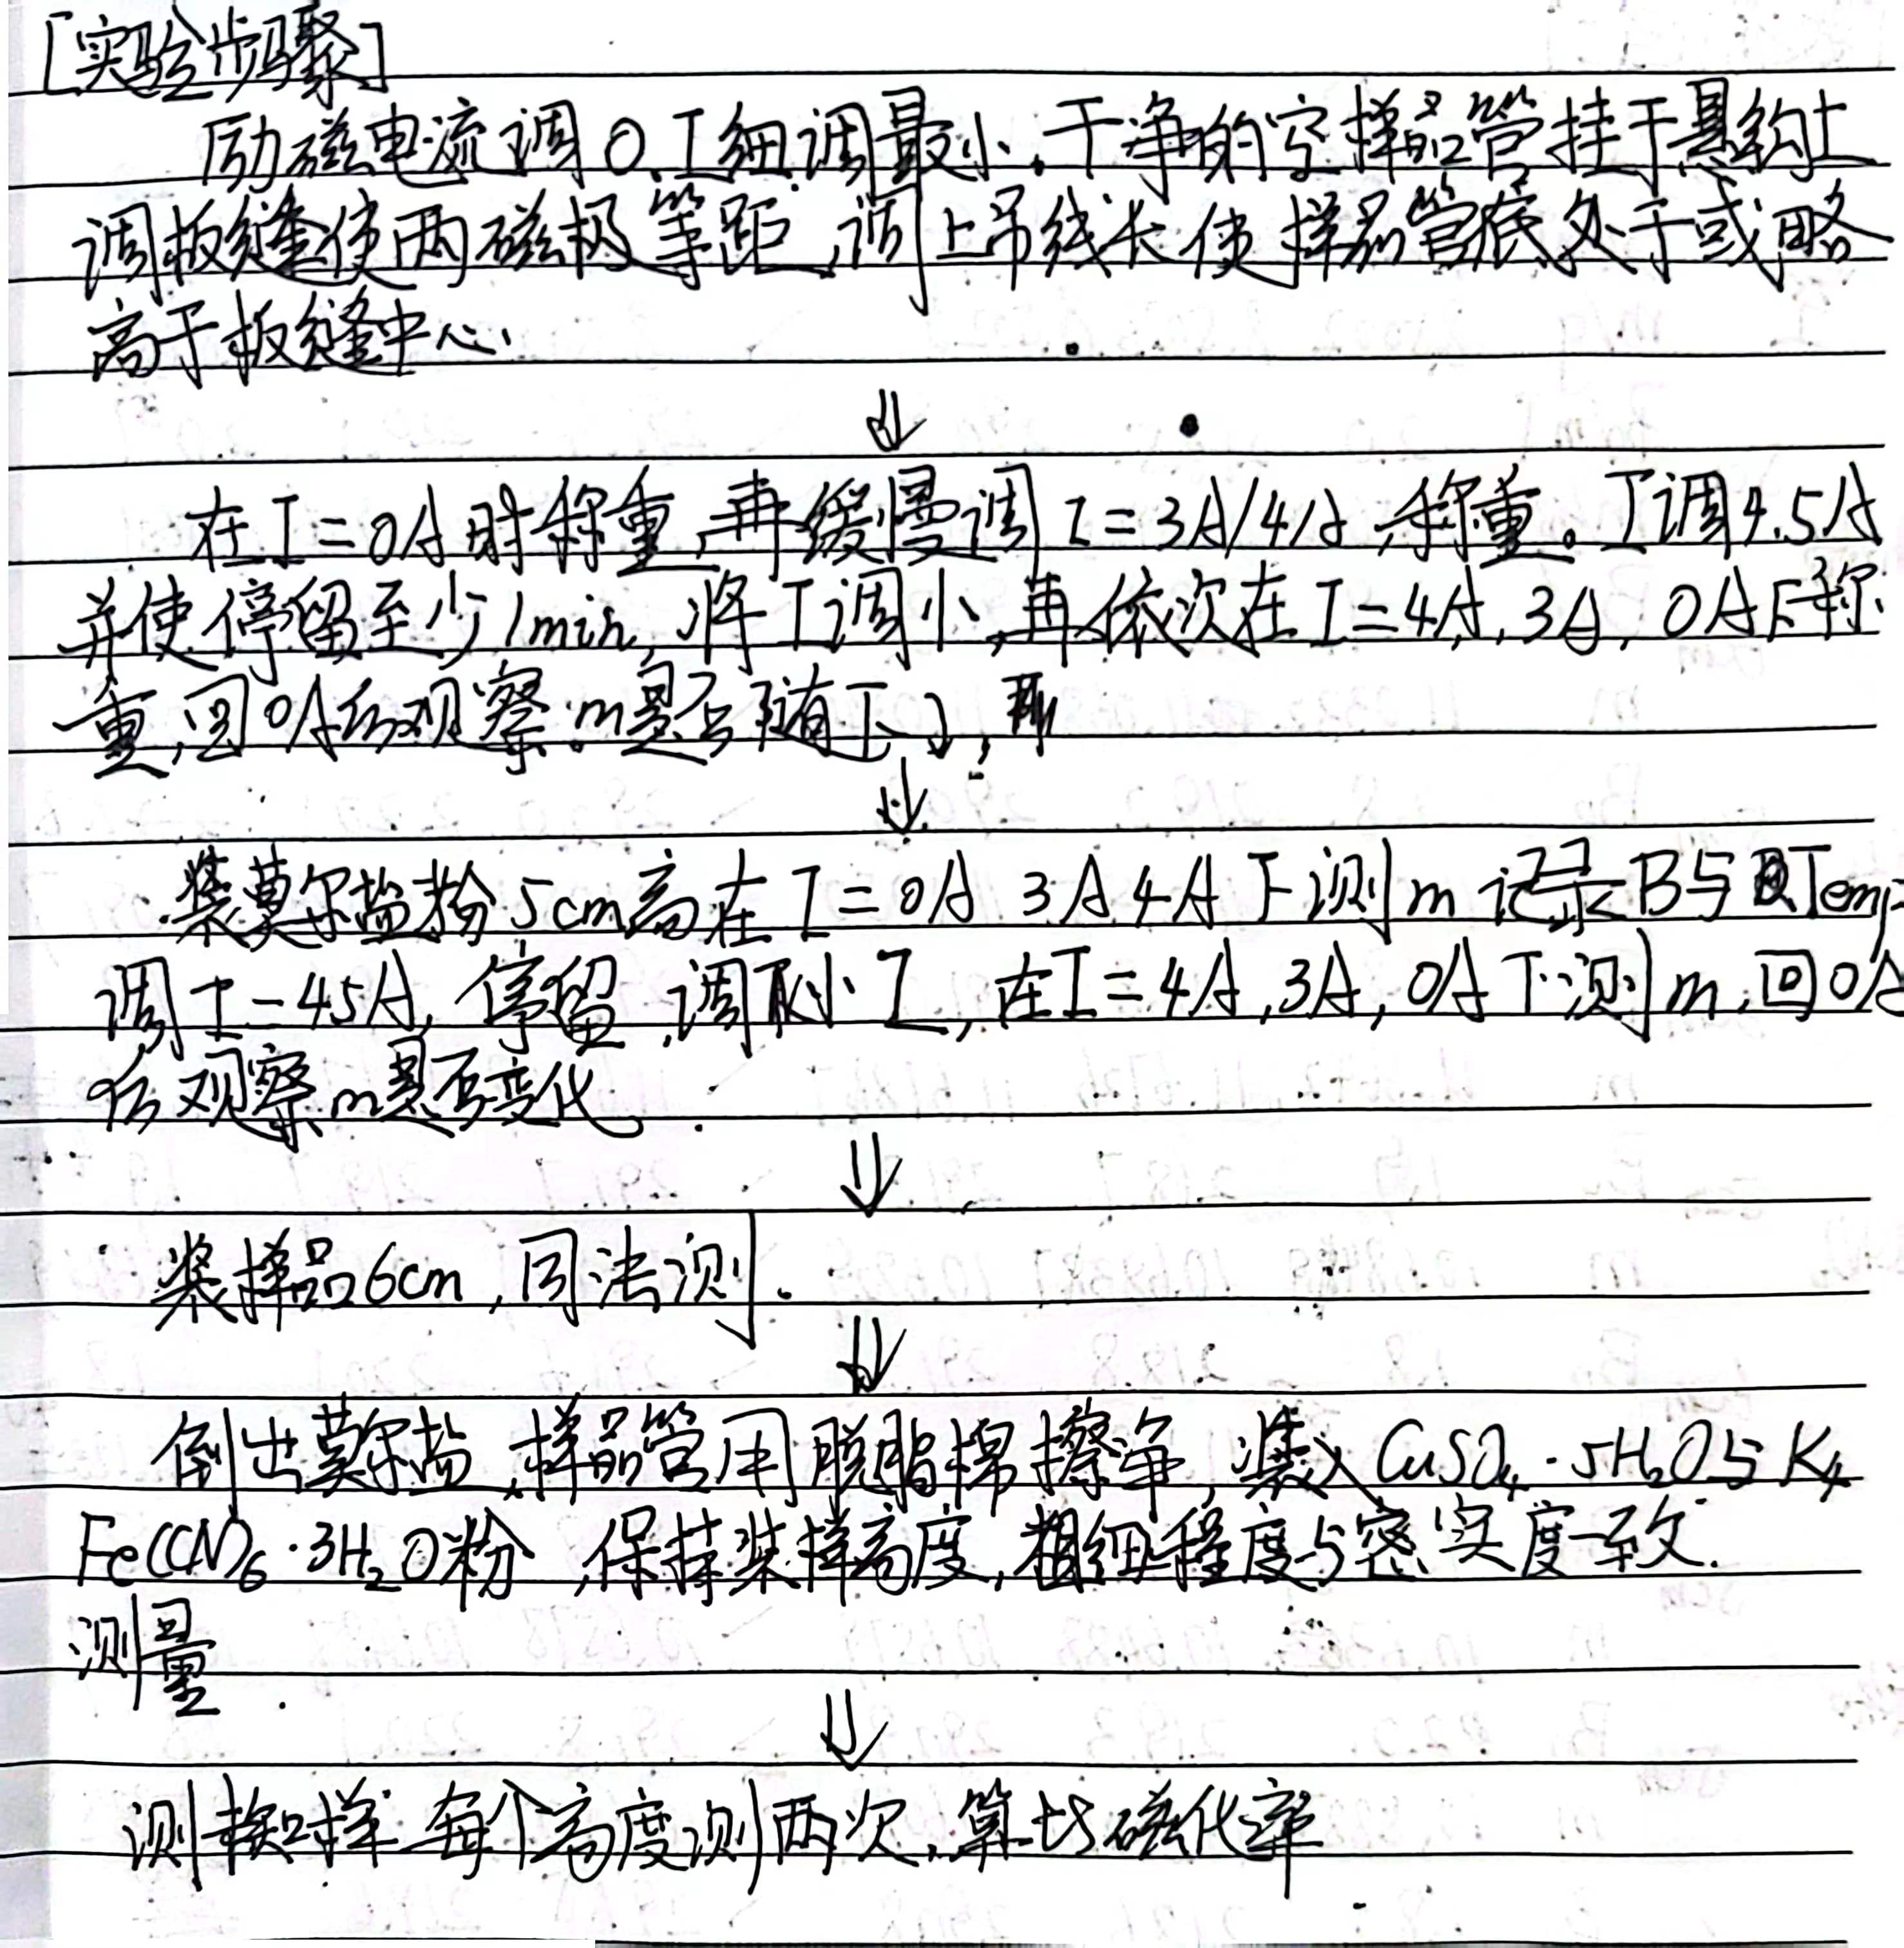 [实验步骤]
励磁电流调0,I细调最小.干净的空样品管挂于悬钩上
调板缝使两磁极等距,调上吊线长使样品管底处于或略
高于板缝中心.
⇓
在I=0A时称重,再缓慢调I=3A/4A,称重。I调4.5A
并使停留至少1min,将I调小,再依次在I=4A,3A,0A下称
重,回0A后观察m是否随I↓,
⇓
装莫尔盐粉5cm高在I=0A 3A 4A下测m 记录B与Temp
调I=4.5A,停留,调小I,在I=4A,3A,0A下测m,回0A
后观察m是否变化.
⇓
装样品6cm,同法测.
⇓
倒出莫尔盐,样品管用脱脂棉擦净,装入CuSO₄·5H₂O与K₄
Fe(CN)₆·3H₂O粉,保持装样高度,粗细程度与密实度一致.
测量
⇓
测 样 每个高度测两次,算 磁化率